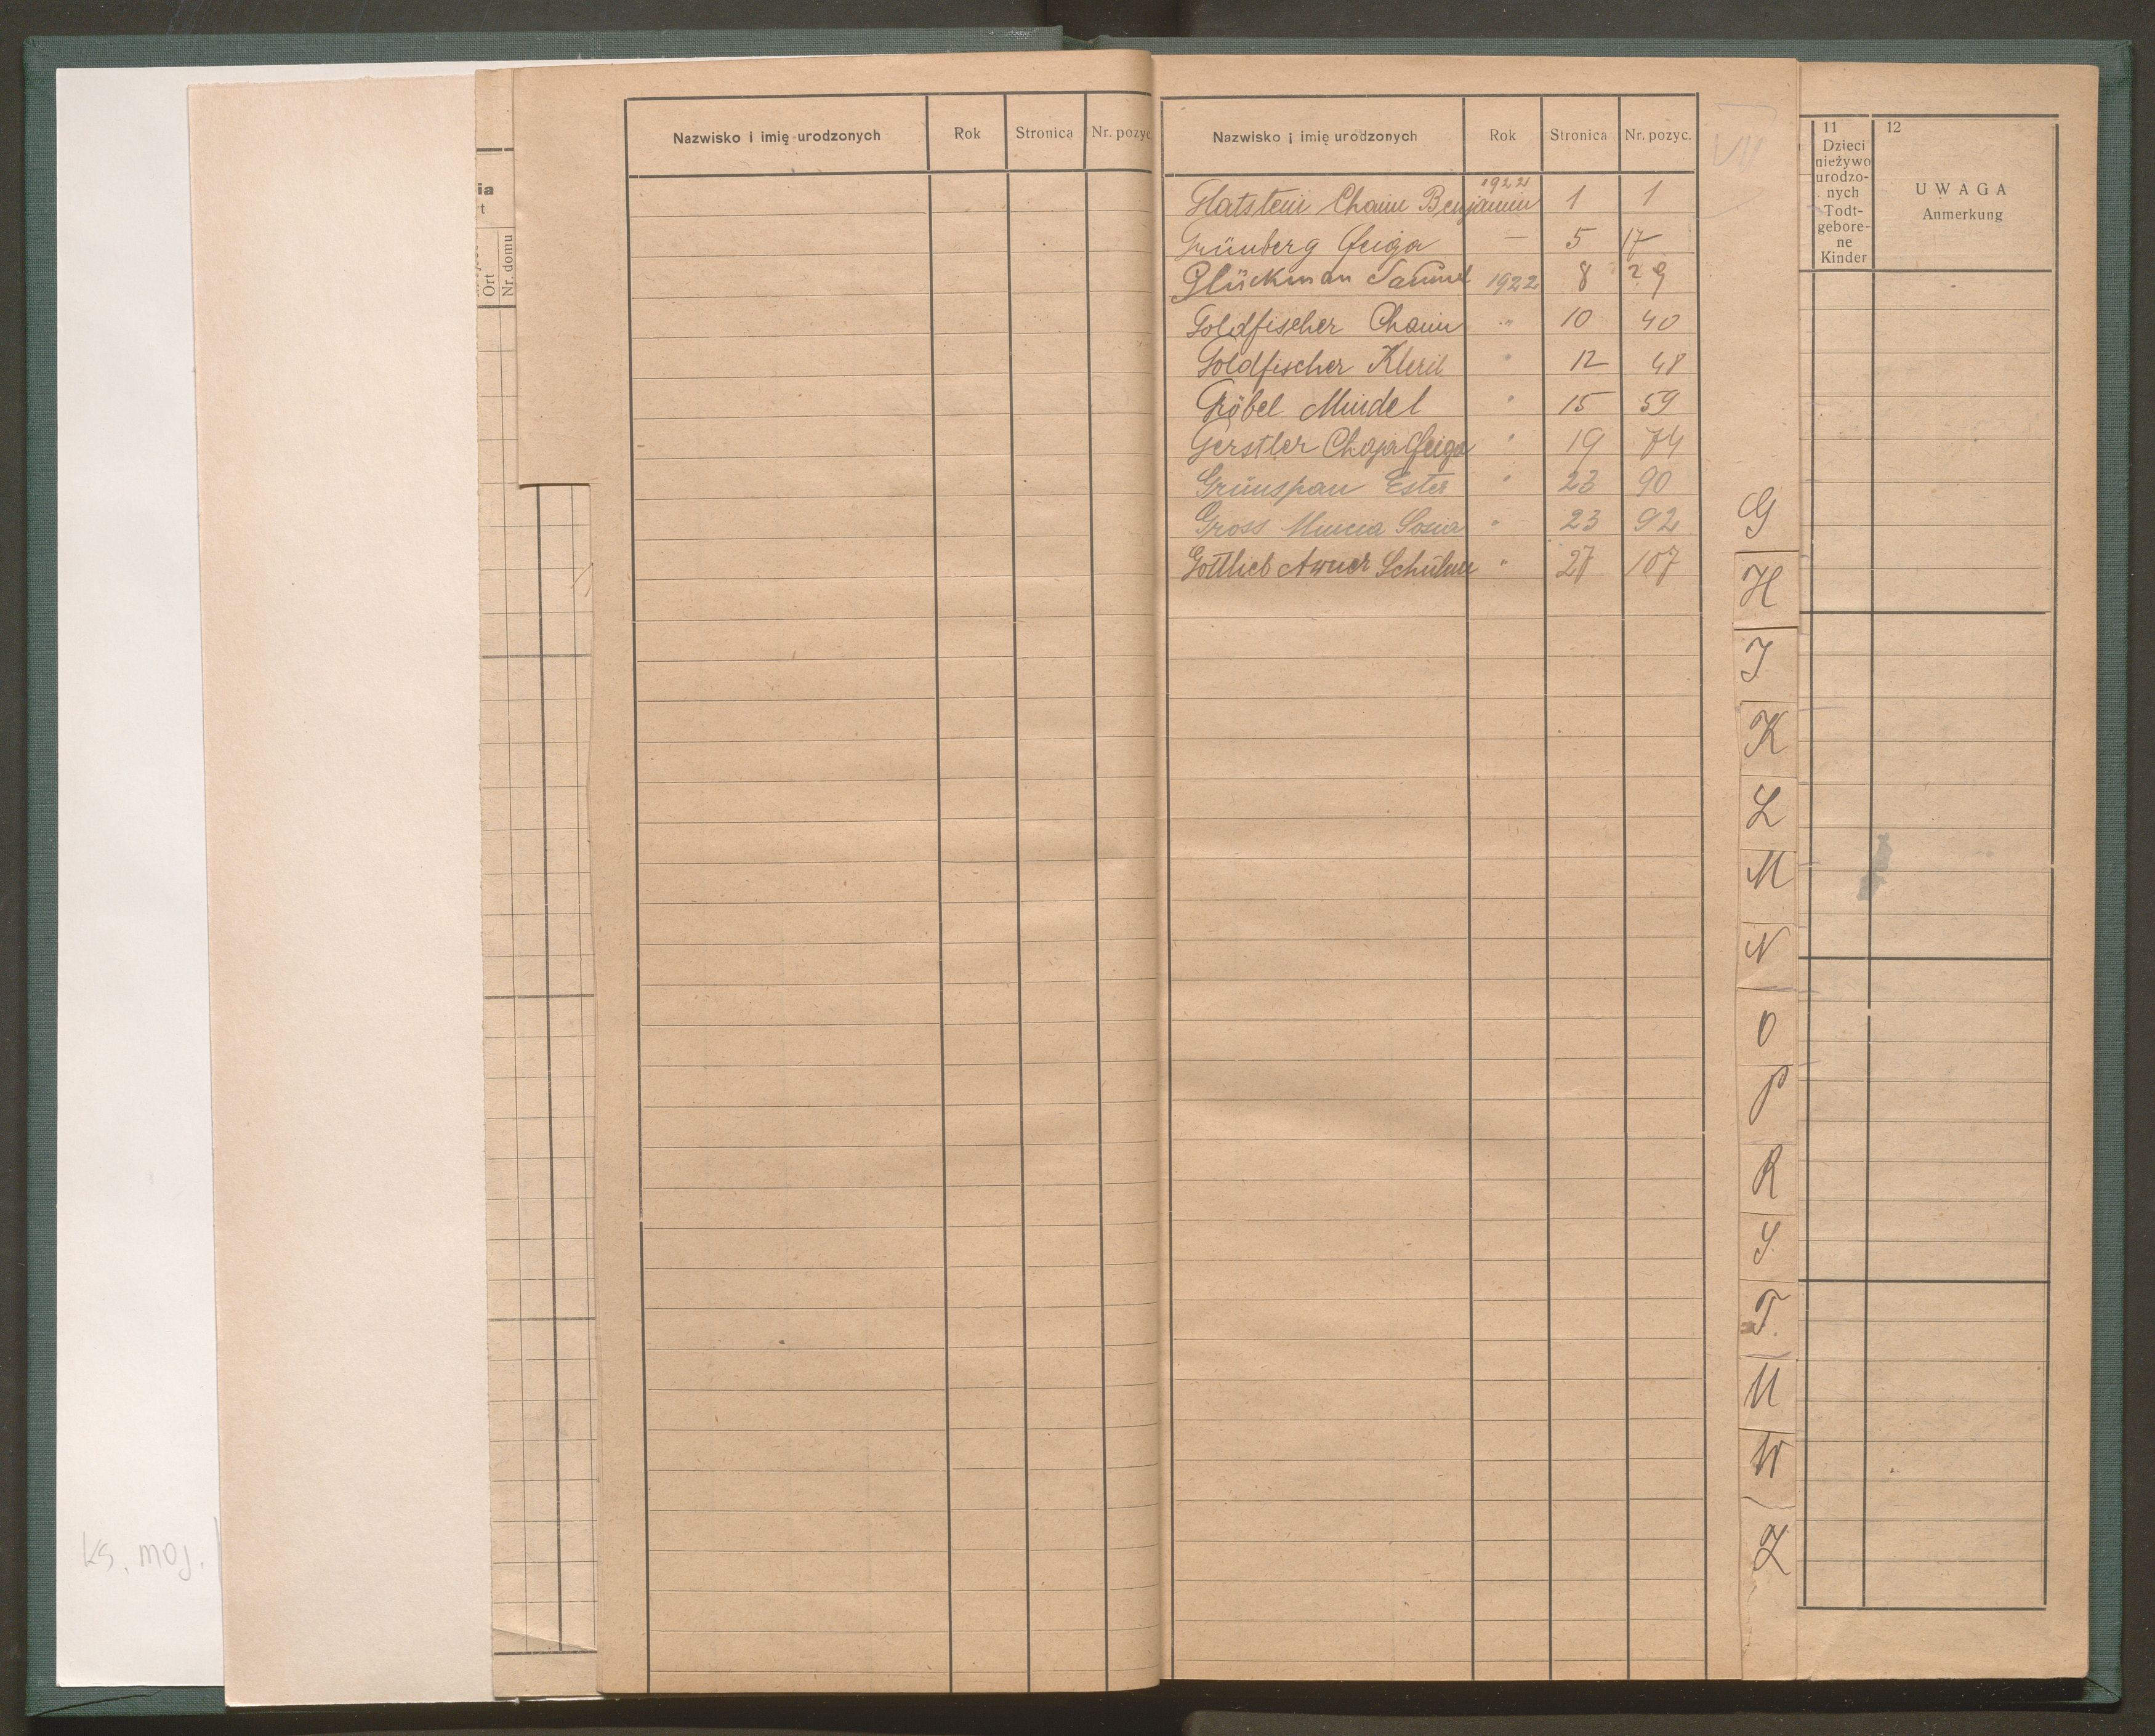 ia
t
Ort
Nr. domu
Nazwisko i imię urodzonych Rok Stronica Nr. pozyc
Nazwisko i imię urodzonych Rok Stronica Nr. pozyc.
VII
1922
Glatstein Chaim Benjamin 1 1
Grünberg Feiga — 5 17
Glückman Samuel 1922 8 29
Goldfischer Chaim " 10 40
Goldfischer " 12 48
Gröbel Mindel " 15 59
Gerstler Chaja Feiga " 19 74
Grünspan Ester " 23 90
Gross " 23 92
Gottlieb Awner " 27 107
G
H
I
K
L
M
N
O
P
R
S
T.
U
W
Z
11
Dzieci
nieżywo
urodzo-
nych
Todt-
gebore-
ne
Kinder
12
UWAGA
Anmerkung
ks. moj.